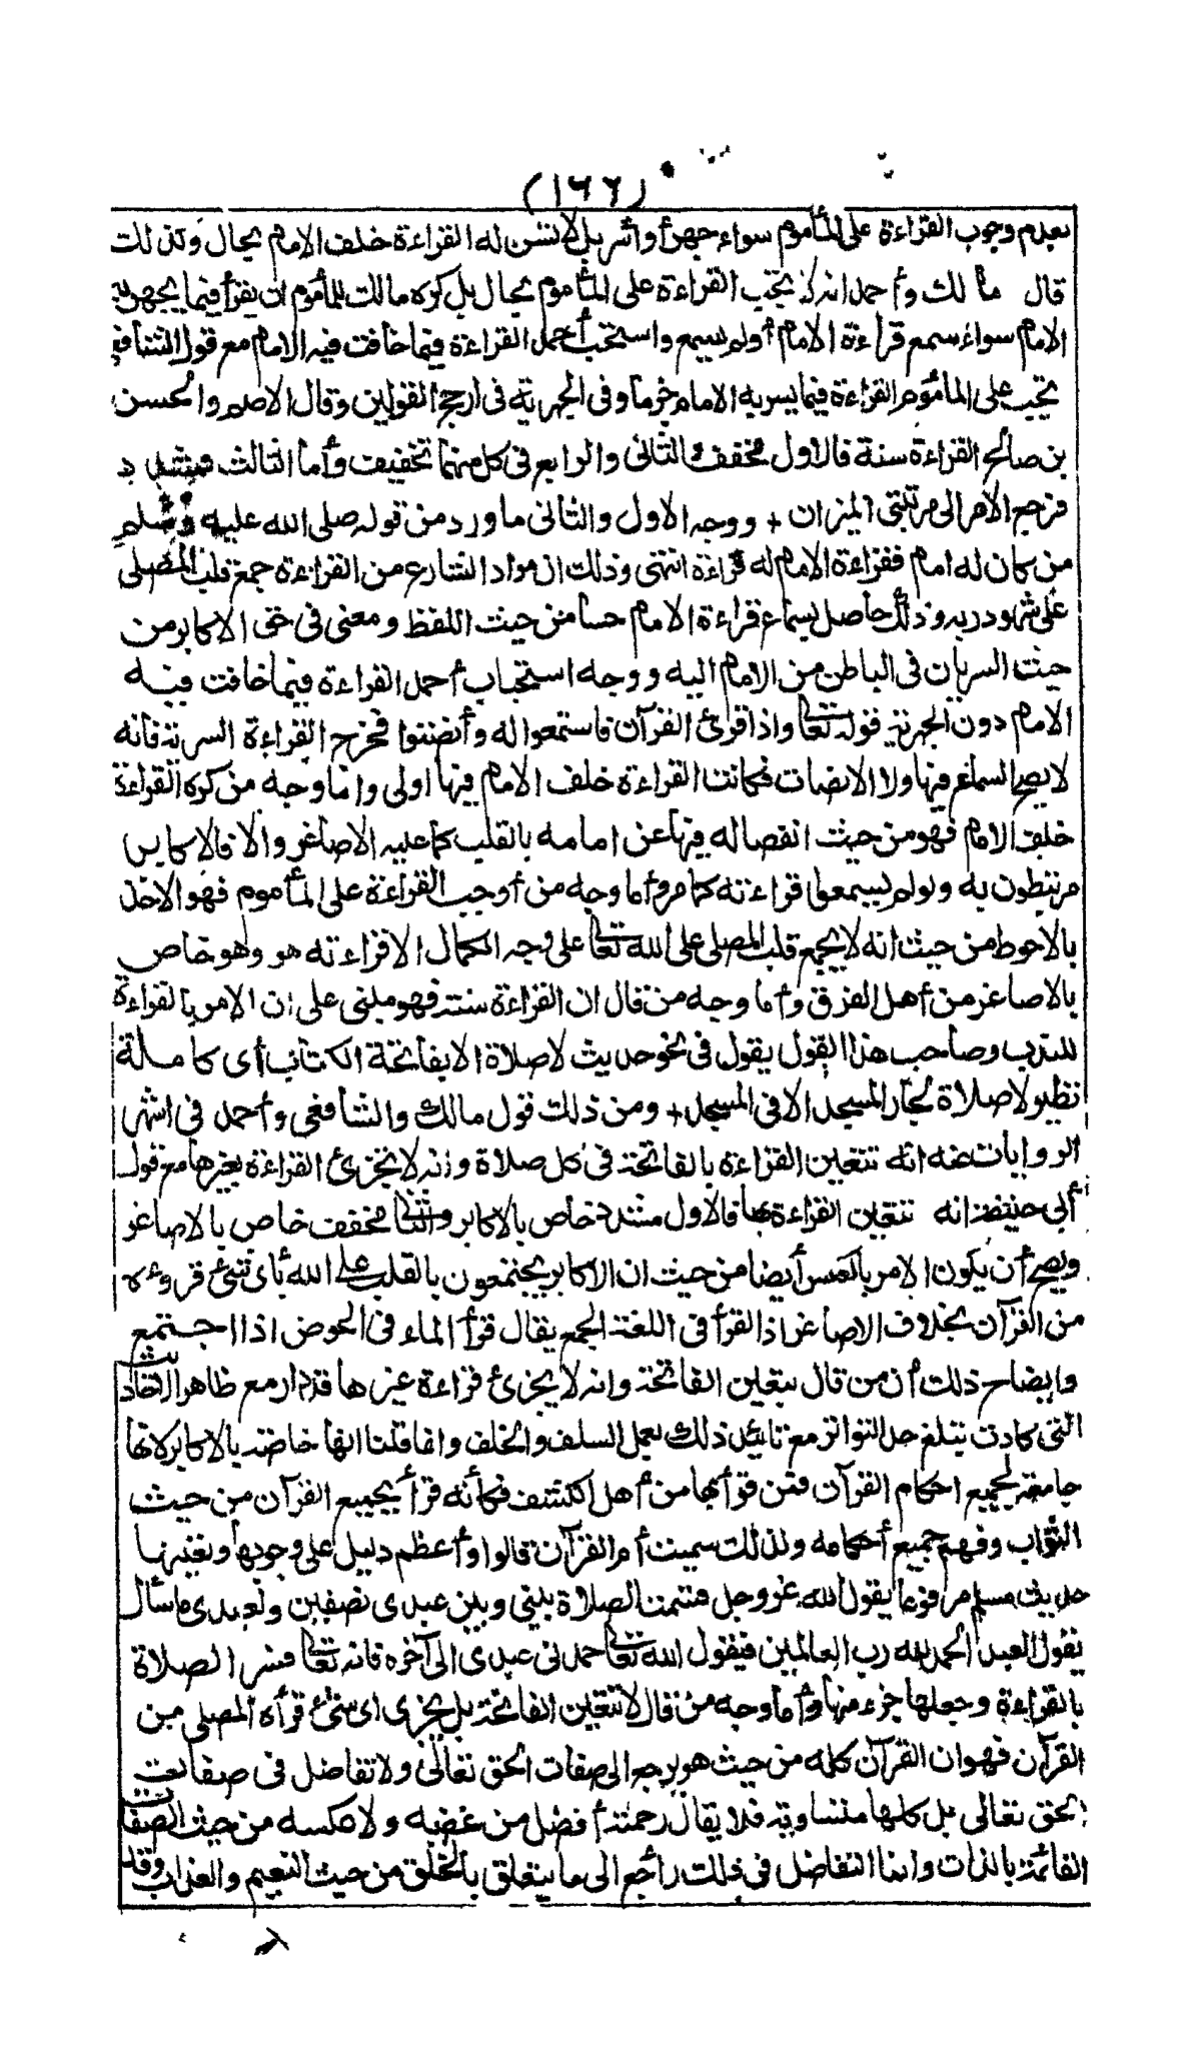 (١٦٦)
بعدم وجوب القراءة على المأموم سواء جهر أو أسر بل لا تسن له القراءة خلف الامام بحال وكذلك
قال مالك وأحمد انه لا تجب القراءة على المأموم بحال بل كره مالك للمأموم ان يقرأ فيما يجهر به
الامام سواء سمع قراءة الامام أولم يسمع واستحب أحمد القراءة فيما خافت فيه الامام مع قول الشافعي
تجب على المأموم القراءة فيما يسر به الامام جزما وفى الجهرية فى ارجح القولين وقال الاصم والحسن
بن صالح القراءة سنة فالاول مخفف والثانى والرابع فى كل منهما تخفيف وأما الثالث فمشدد
فرجع الأمر الى مرتبتي الميزان + ووجه الاول والثانى ما ورد من قوله صلى الله عليه وسلم
من كان له امام فقراءة الامام له قراءة انتهى وذلك ان مراد الشارع من القراءة جمع قلب المصلى
على شهود ربه وذلك حاصل بسماع قراءة الامام حسا من حيث اللفظ ومعنى فى حق الاكابر من
حيث السريان فى الباطن من الامام اليه ووجه استحباب أحمد القراءة فيما خافت فيه
الامام دون الجهرية قوله تعالى واذا قرئ القرآن فاستمعوا له وأنصتوا فخرج القراءة السرية فانه
لا يصح السماع فيها ولا الانصات فكانت القراءة خلف الامام فيها اولى واما وجه من كره القراءة
خلف الامام فهو من حيث انفصاله فيها عن امامه بالقلب كما عليه الاصاغر والا فالاكابر
مرتبطون به ولو لم يسمعوا قراءته كما مر وأما وجه من أوجب القراءة على المأموم فهو الاخذ
بالاحوط من حيث انه لا يجمع قلب المصلى على الله تعالى على وجه الكمال الا قراءته هو وهو خاص
بالاصاغر من أهل الفرق وأما وجه من قال ان القراءة سنة فهو مبنى على ان الامر بالقراءة
للندب وصاحب هذا القول يقول فى نحو حديث لا صلاة الا بفاتحة الكتاب أى كاملة
نظير لا صلاة لجار المسجد الا فى المسجد + ومن ذلك قول مالك والشافعى وأحمد فى اشهر
الروايات عنه انه تتعين القراءة بالفاتحة فى كل صلاة وانه لا يجزئ القراءة بغيرها مع قول
أبى حنيفة انه تتعين القراءة بها فالاول مشدد خاص بالاكابر والثانى مخفف خاص بالاصاغر
ويصح أن يكون الامر بالعكس أيضا من حيث ان الاكابر يجتمعون بالقلب على الله بأى شئ قروءه
من القرآن بخلاف الاصاغر اذ القرأ فى اللغة الجمع يقال قرأ الماء فى الحوض اذا اجتمع
وايضاح ذلك أن من قال بتعين الفاتحة وانه لا يجزئ قراءة غيرها قد دار مع ظاهر الاحاديث
التى كادت تبلغ حد التواتر مع تأييد ذلك بعمل السلف والخلف وانما قلنا انها خاصة بالاكابر لانها
جامعة لجميع احكام القرآن فمن قرأ بها من أهل الكشف فكأنه قرأ بجميع القرآن من حيث
الثواب وفهم جميع أحكامه ولذلك سميت أم القرآن قالوا وأعظم دليل على وجوبها وتعينها
حديث مسلم مرفوعا يقول الله عز وجل قسمت الصلاة بينى وبين عبدى نصفين ولعبدى ما سأل
يقول العبد الحمد لله رب العالمين فيقول الله تعالى حمدنى عبدى الى آخره فانه تعالى فسر الصلاة
بالقراءة وجعلها جزء منها وأما وجه من قال لا تتعين الفاتحة بل يجزى اى شئ قرأه المصلى من
القرآن فهو ان القرآن كله من حيث هو يرجع الى صفات الحق تعالى ولا تفاضل فى صفات
الحق تعالى بل كلها متساوية فلا يقال رحمته أفضل من غضبه ولا عكسه من حيث الصفات
القائمة بالذات وانما التفاضل فى ذلك راجع الى ما يتعلق بالخلق من حيث النعيم والعذاب وقد